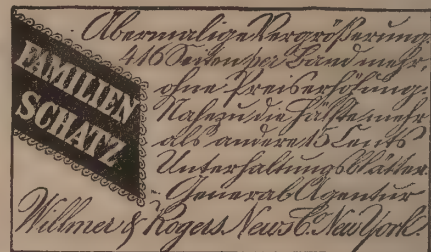 Abermalige Vergrößerung.
416 Seiten per Band mehr,
FAMILIEN
SCHATZ
ohne Preiserhöhung.
Nahezu die Hälfte mehr
als andere 15 Cents
Unterhaltungs Blätter.
General Agentur
Willmer & Rogers News C. New York.